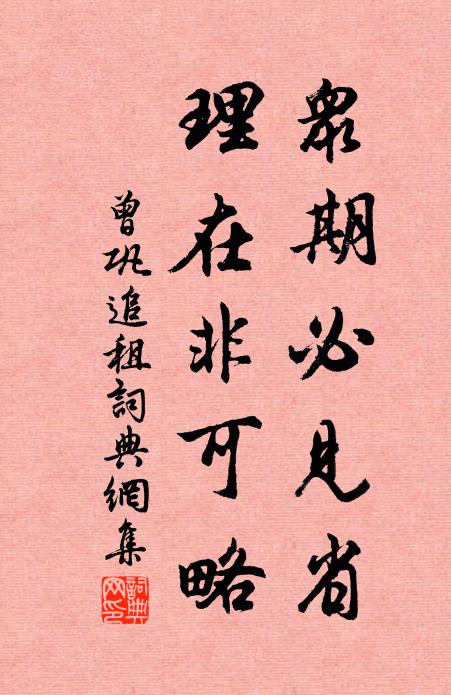 眾期必見省
理在非可略
曾巩追租詞典網集
詞典網印